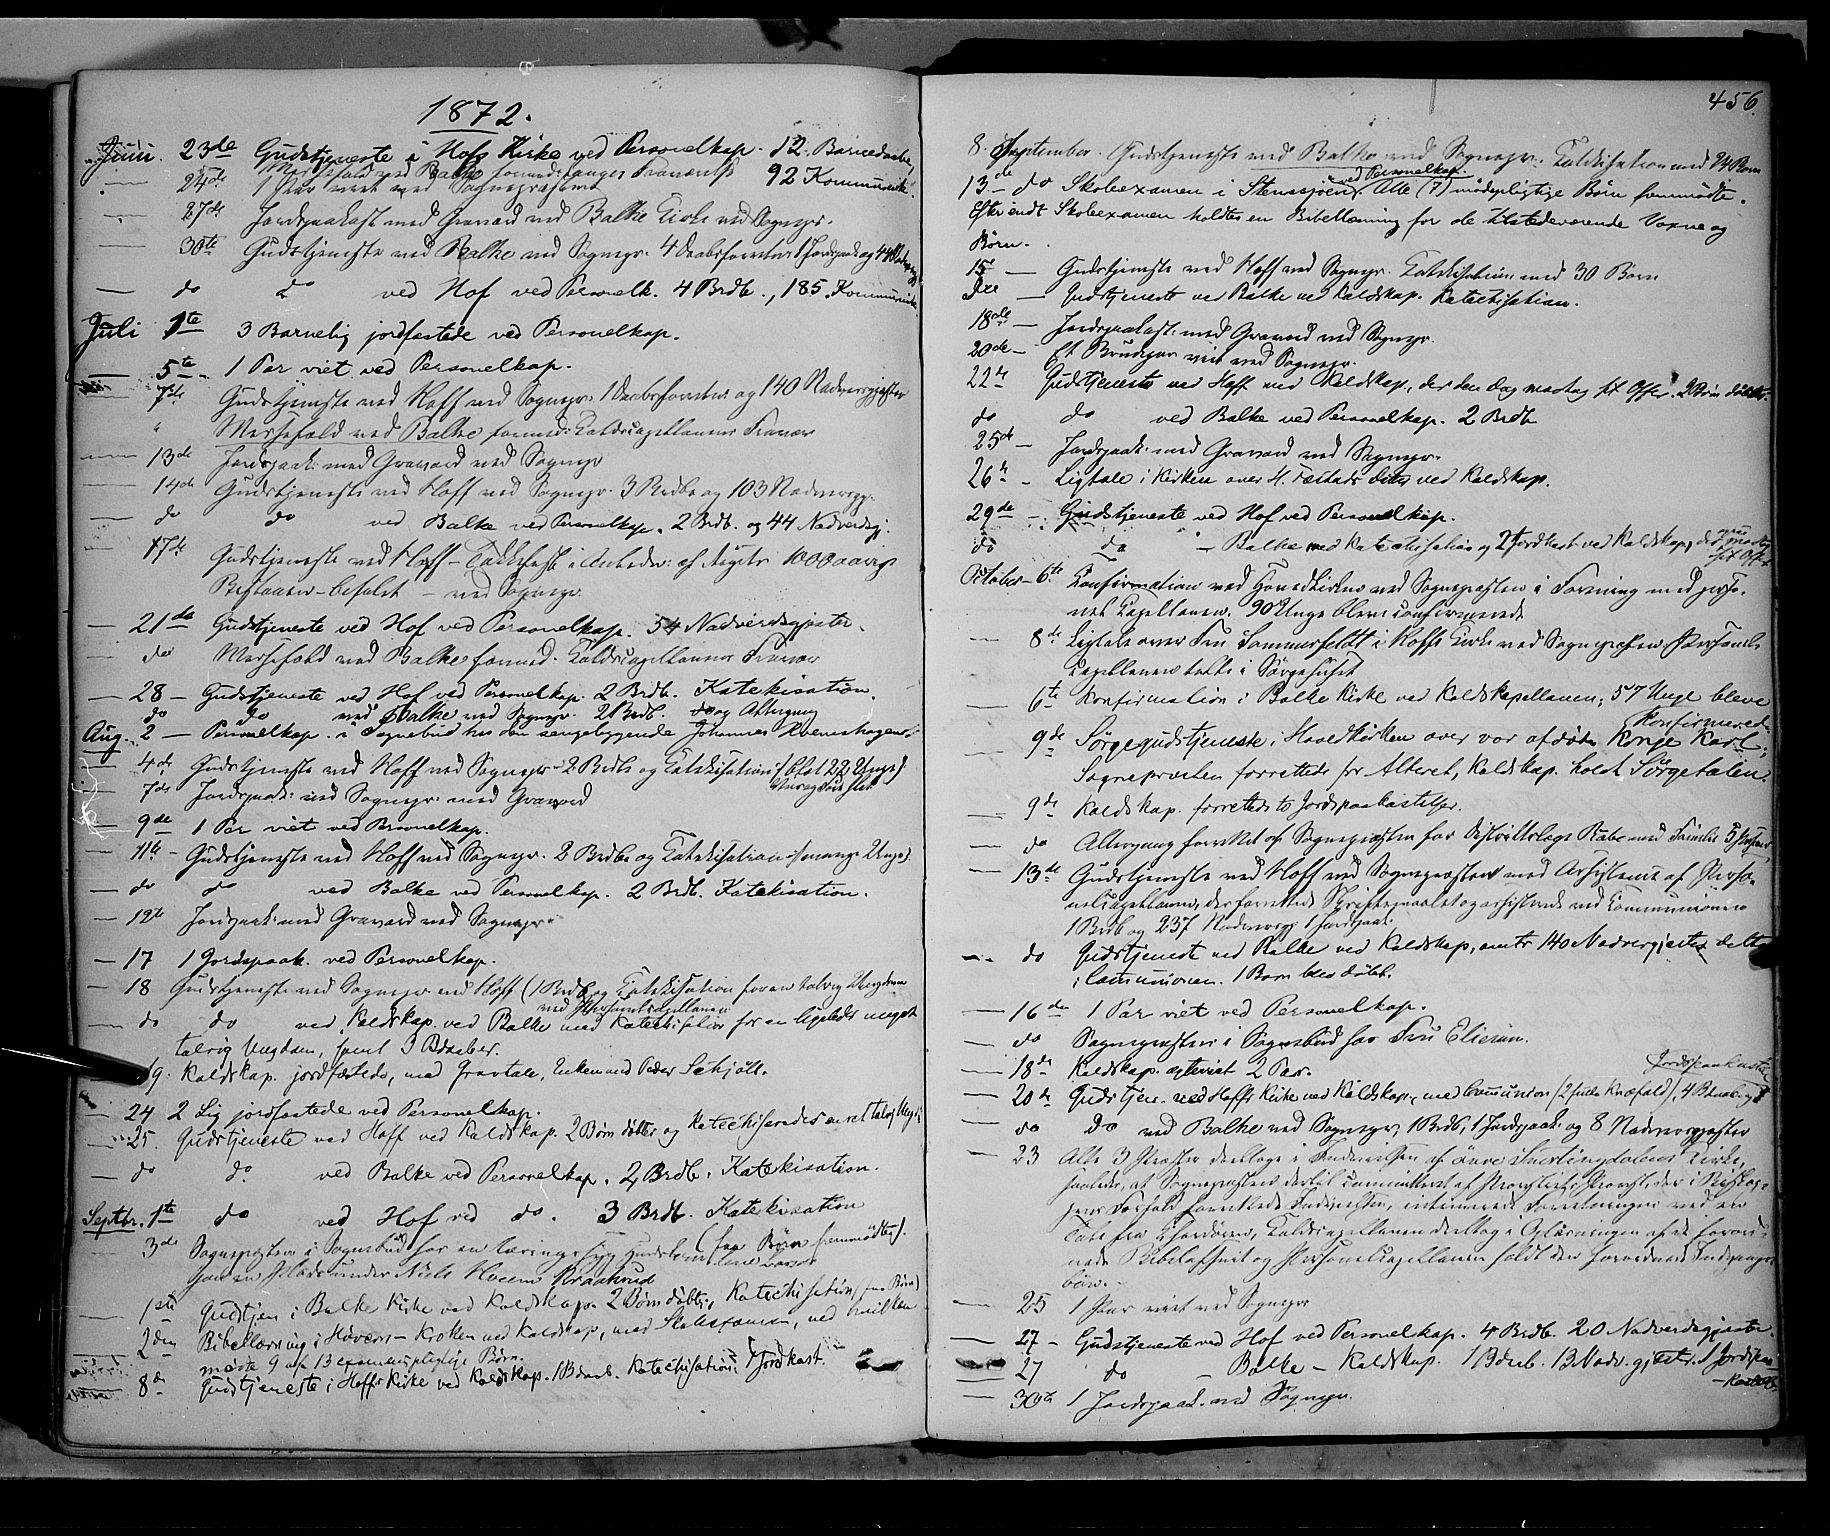 1872.
Juni. 23de Gudstjeneste i Hofs Kirke ved Personelkap. 12. Barnedaabe,
Messefald ved Balke formed: Forfald
24de 1 Par viet ved Sognepræsten 92 Kommunik.
27de Jordspaakast med Gravord ved Balke Kirke ved Sognepr.
30te Gudstjeneste ved Balke ved Sognepr. 4 Daabsforretn. 1 Jordspaak og 44
— do do ved Hof ved Personelk. 4 Brdb., 185. Kommunik
Juli 1te 3 Barnelig jordfæstede ved Personelkap.
— 5te 1 Par viet ved Personelkap.
7de Gudstjeneste ved Hoff ved Sognepr. 1 Daabsforretn. og 140 Nadverdgjester
" Messefald ved Balke formed: Kaldscapellanens Fravær
13de Jordspaak: med Gravord ved Sognepr
14de Gudstjeneste ved Hoff ved Sognepr. 3 Brdbe og 103 Nadversgj.
do do ved Balke ved Personelkap. 2 Brdb. og 44 Nadverdsgj.
17de Gudstjeneste ved Hoff – Takkefest i Anledn: af Rigets 1000aarige
Bestaaen – befalet – ved Sognepr.
— 21de Gudstjeneste ved Hof ved Personelkap. 54 Nadverdsgjæster.
— do Messefald ved Balke formed: Kaldscapellanens Fravær
— 28 – Gudstjeneste ved Hof ved Personelkap. 2 Brdb. Katekisation.
do do ved Balke ved Sognepr. 2 Brdb. do og Altergang
Aug. 2 – Personelkap. i Sognebud hos den sengeliggende Johannes Kvemshagen
— 4de Gudstjeneste ved Hoff ved Sognepr – 2 Brdb og Katekisation (blot 22 Unge)
— 7de Jordspaak: ved Sognepr: med Gravord
— 9de 1 Par viet ved Personelkap.
— 11te – Gudstjeneste ved Hoff ved Sognepr. 2 Brdbe og Katekisation (mange Unge).
— do do ved Balke ved Personelkap. 2 Brdb. Katekisation.
— 12te Jordspaak: med Gravord ved Sognepr
— 17 1 Jordspaak. ved Personelkap.
— 18 Gudstjeneste ved Sognepr ved Hoff (1 Brdb og Katekisation for en talrig Ungdom
ved Personelcapellanen
— do do ved Kaldskap. ved Balke med Katechisation for en ligeledes meget
talrig Ungdom, samt 3 Bdaaber.
19. Kaldskap. jordfæstede, med Gravtale, Enkemand Peder Schjøll.
— 24 2 Lig jordfæstede ved Personelkap.
25. Gudstjeneste ved Hoff ved Kaldskap. 2 Børn døbtes og Katechiseredes en ret talrig Ungd.
— do do. ved Balke ved Personelkap. 2 Brdb. Katekisation.
Septbr. 1te do ved Hof ved do. 3 Brdb. Katekisation
3de Sognepræsten i Sognebud for en (faa Børn fremmødte).
paa en Plads under Niels Hoem Kraabund
— 1ste Gudstjen i Balke Kirke ved Kaldskap. 2 Børn døbtes, Katechisation (faa Børn)
— 2den Bibellæsning i Haveren – Kroken ved Kaldskap, med Skoleexamen, ved hvilken
mødte 9 af 13 examenspligtige Børn.
— 8de Gudstjeneste i Hoffs Kirke ved Kaldskap. 1 Bdaab. Katechisation. 1 Jordkast.
456.
8. September. Gudstjeneste ved Balke ved Sognepr. Katekisation med 24 Børn
ved Personelkap.
13de do Skoleexamen i Stenssjøen Alle (7) mødepligtige Børn fremmødte.
Efter endt Skoleexamen holdtes en Bibellæsning for de tilstedeværende Voxne og
Børn.
15 — Gudstjeneste ved Hoff ved Sognepr. Katekisation med 30 Børn
— Gudstjeneste ved Balke ved Kaldskap. Katechisation.
18de – Jordspaakast: med Gravord ved Sognepr.
20de – Et Brudepar viet ved Sognepr.
22de Gudstjeneste ved Hoff ved Kaldskap., der den Dag modtog sit Offer. 2 Børn døbtes.
do do ved Balke ved Personelkap. 2 Brdb
25de – Jordspaak: med Gravord ved Sognepr.
26de – Ligtale i Kirken over H. Fæstads ved Kaldskap.
29de – Gudstjeneste ved Hof ved Personelkap.
do do – Balke med Katechisation og 2 Jordkast ved Kaldskap, der modtog
sit Offer
October – 6te Konfirmation ved Hovedkirken ved Sognepræsten i Forening med perso-
nel Capellanen. 90 Unge bleve confirmerede
— 8de Ligtale over Fru Sommerfeldt i Hoffs Kirke ved Sognepræsten. Personel
Capellanen talte i Sørgehuset
— 6te Konfirmation i Balke Kirke ved Kaldskapellanen; 57 Unge bleve
Konfirmered
— 9de Sørgegudstjeneste i Hovedkirken over vor afdøde Konge Karl.
Sognepræsten forrettede for Alteret, Kaldskap. holdt Sørgetalen.
— 9de Kaldskap. forrettede to Jordspaakastelser.
— do Altergang forrettet af Sognepræsten for Distriktslæge Rabe med Familie
— 13de Gudstjeneste ved Hoff ved Sognepræsten med Assistents af Perso-
nelcapellanen, der forrettede Skriftemaalet og assisterede ved Communionen
1 Brdb og 237 Nadversgj. 1 Jordspaak:
do Gudstjenest ved Balke ved Kaldskap, omtr 140 Nadvergjester deltog
i Communionen. 1 Barn blev døbt.
— 16de 1 Par viet ved Personelkap.
— do Sognepræsten i Sognebud hos Fru Eliesen.
— 18de Kaldskap. ægteviet 2 Par. Jordspaakastels
— 20de Gudstjen. ved Hoffs Kirke ved Kaldskap, med Communion (2 fulde Knæfald), 4 Bdaab og 1
— do Do ved Balke ved Sognepr, 1 Brdb, 1 Jordspaak: og 8 Nadversgjæster
— 23 Alle 3 Præster deeltoge i Indvielsen af øvre Snertingdalens Kirke,
saaledes, at Sognepræsten dertil committeret af Provsten i Biskop-
pens Forfald forrettede Indvielsen, Forretningen ved en
Tale fra Chordøren, Kaldscapellanen deeltog i Oplæsningen af de forord-
nede Bibelafsnit og Personelcapellanen holdt den forordnede Indgangs-
bøn. –
— 25 1 Par viet ved Sognepr
— 27 – Gudstjeneste ved Hof ved Personelkap. 4 Brdb. 20 Nadverdsgjæster.
27 do – Balke – Kaldskap. 1 Bdaab. 13 Nadv. gjestr. 1 Jordspaa-
kast.
— 30te 1 Jordspaak. ved Sognepr.